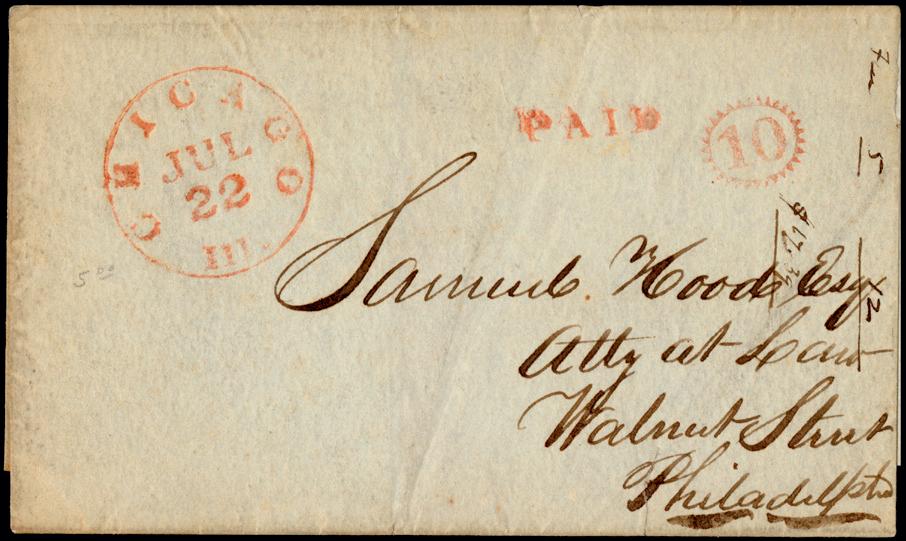 CHICAGO
JUL
22
Ill.
PAID
10
5.00
Samuel Hood Esq.
Atty at Law
Walnut Street
Philadelphia
5